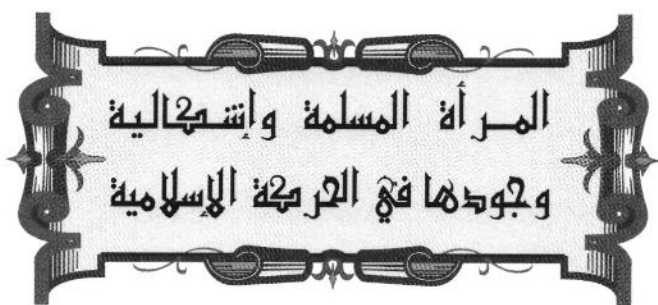 المرأة المسلمة وإشكالية
وجودها في الحركة الإسلامية